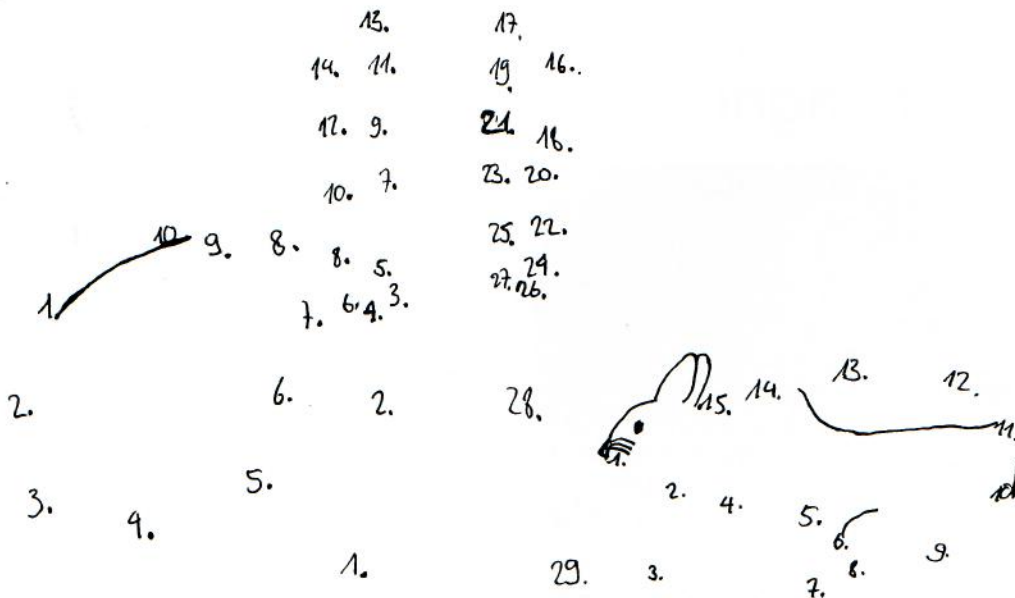 13. 17.
14. 11. 19. 16.
12. 9. 21. 18.
10. 7. 23. 20.
10 9. 8. 8. 5. 25. 22.
27. 24.
1. 7. 6. 4. 3. 26.
2. 6. 2. 28. 15. 14. 13. 12.
11.
1.
3. 4. 5. 2. 4. 5. 10
6. 9.
1. 29. 3. 7. 8.